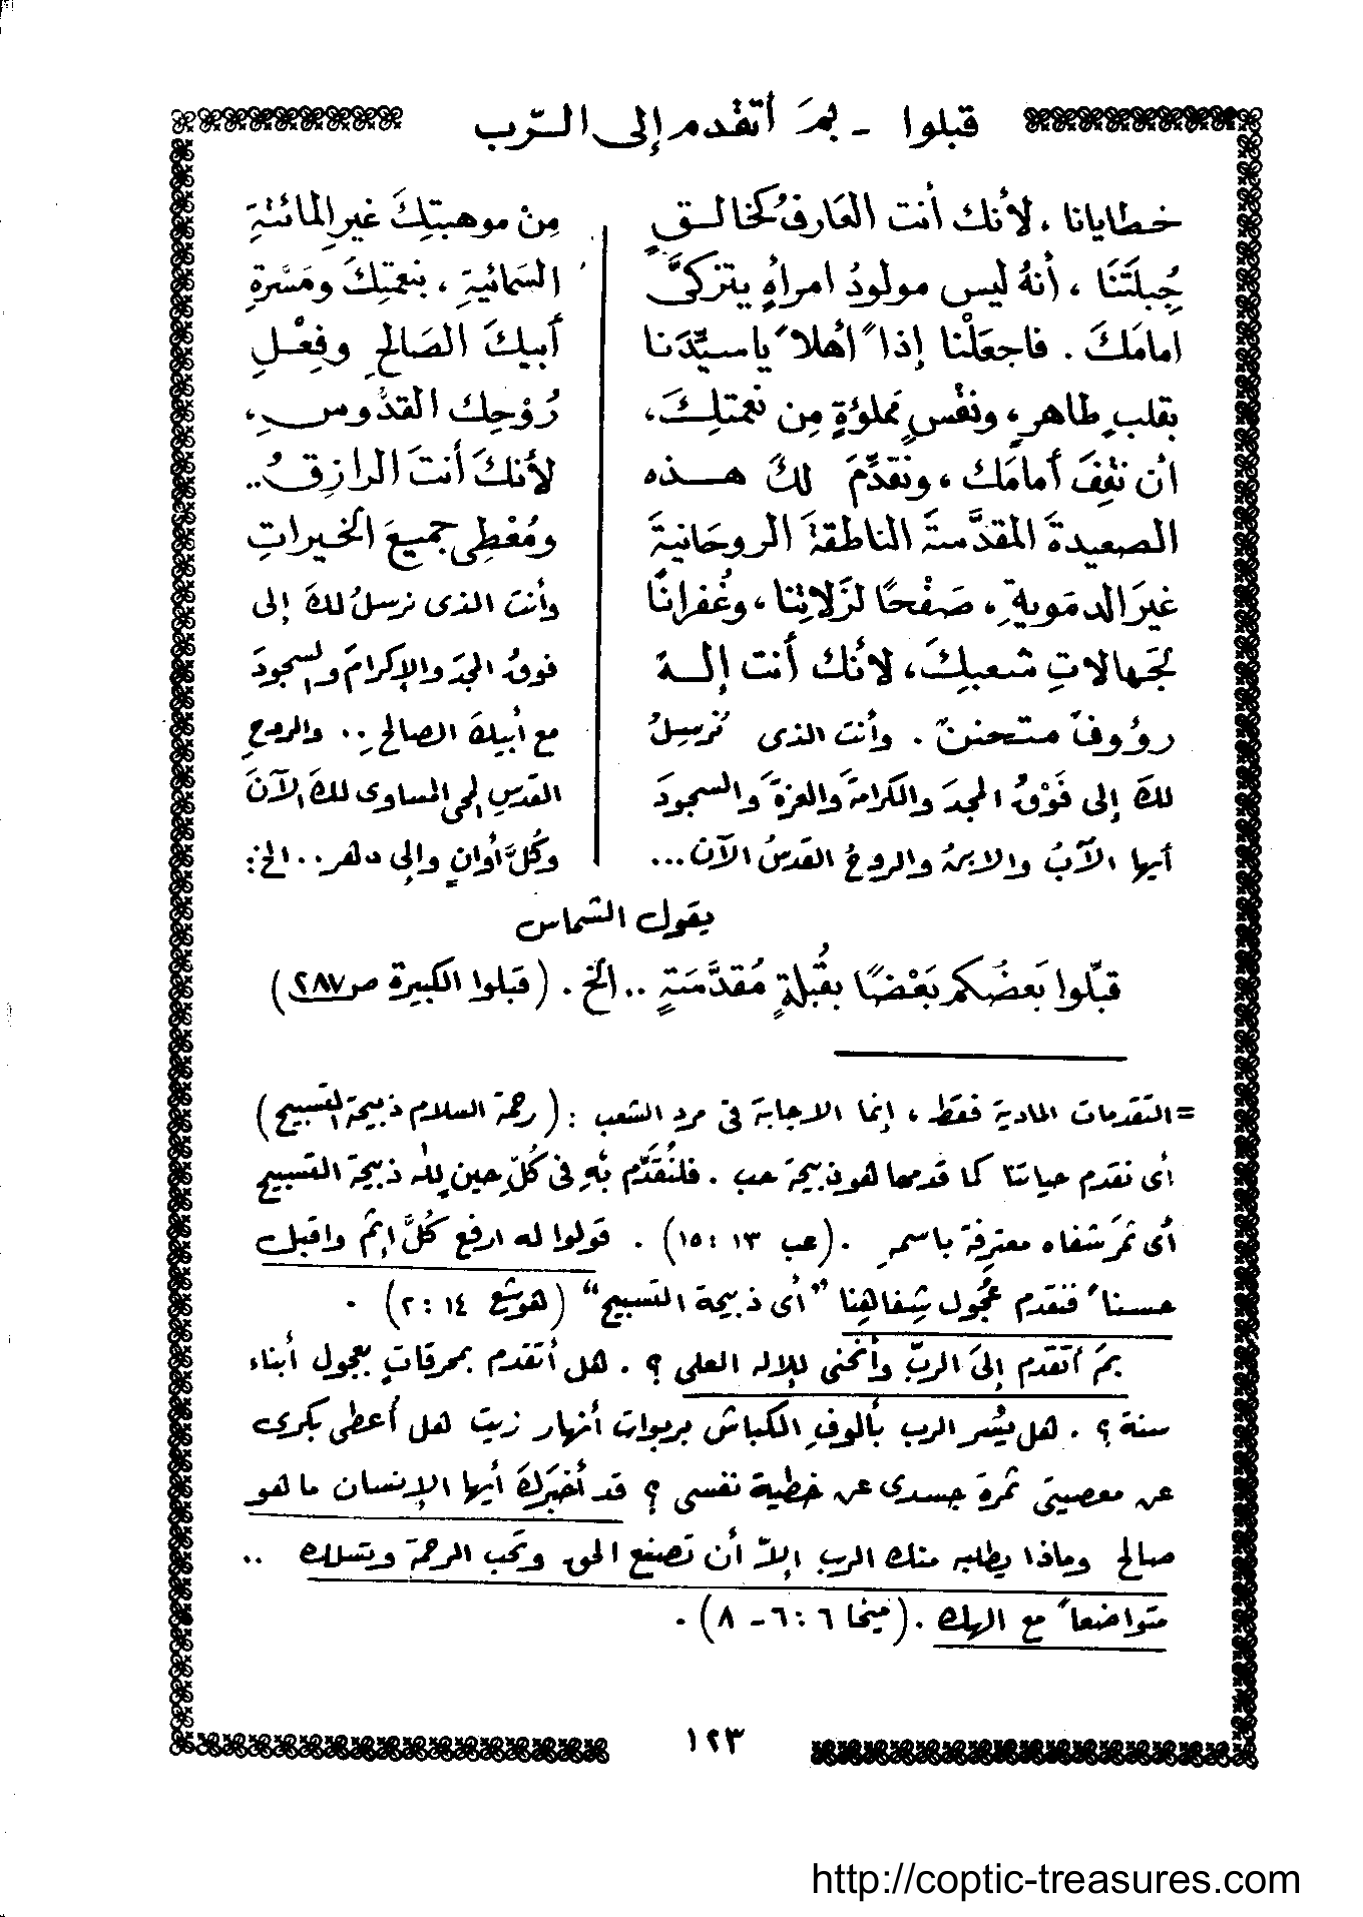 قبلوا - بمَ أتقدم إلى الرّب
خطايانا ، لأنك أنت العَارفُ كخالقٍ
جِبلَتَنَا ، أنهُ ليس مولودُ امرأةٍ يتزكىَّ
امامَكَ . فاجعَلْنا إذاً أهلاً ياسيِّدَنا
بقلبٍ طاهرٍ، ونفْسٍ مَملوُةٍ مِن نعمتكِ،
ان نقِفَ أمامَك ، ونقدِّمَ لكَ هذه
الصعيدةَ المقدَّسةَ الناطقةَ الروحَانيةَ
غيرَ الدمَويةِ ، صَفْحًا لزَلاتِنا ، وغُفرانًا
لجَهالاتِ شعبكَ، لأنك أنت إلهٌ
رؤوفٌ متحننٌ . وأنت الذى نُرسِلُ
لكَ إلى فَوْقُ المجدَ والكرامةَ والعزةَ والسجودَ
أيها الآبُ والابنُ والروحُ القدسُ الآن ...
مِنْ موهبتِكَ غيرِ المائتةِ
السَمائيةِ ، بنعمتِكَ ومَسْرةِ
أبيكَ الصَالحِ وفِعْلِ
رُوْحِك القدُّوسِ،
لأنكَ أنتَ الرازقُ ..
ومُعْطِى جميعَ الخيراتِ
وأنت الذى نرسلُ لكَ إلى
فوقُ المجدَ والإكرامَ والسجودَ
مع أبيكَ الصالحِ .. والروحِ
القدسِ المحى المساوى لك الآنَ
وكُلَّ أوانٍ وإلى دهر .. الخ :
يقول الشماس
قبّلوا بَعضُكم بَعْضًا بقُبلةٍ مُقدَّسَةٍ .. الخ . ( قبلوا الكبيرة ص ٢٨٧ )
= التقدمات المادية فقط ، إنما الاجابة فى مرد الشعب : ( رحمة السلام ذبيحة التسبيح )
أى نقدم حياتنا كما قدمها هو ذبيحة حب . فلنُقدِّم بهِ فى كُلّ حين لله ذبيحة التسبيح
أى ثمَر شفاه معترِفة باسمهِ . (عب ١٣ : ١٥) . قولوا له ارفع كُلَّ إثم واقبل
حسناً فنقدم عُجُول شِفاهِنا " أى ذبيحة التسبيح " (هوشع ١٤ : ٢) .
بمَ أتقدم إلىَ الربّ وأنحنى للإله العلى ؟ . هل أتقدم بمحرقاتٍ بعجول أبناء
سنة ؟ . هل يُسر الرب بألوفِ الكباش بربوات أنهار زيت هل أعطى بكرى
عن معصيتى ثمرة جسدى عن خطية نفسى ؟ قد أخبَركَ أيها الإنسان ما هو
صالح وماذا يطلبه منك الرب إلاّ أن تصنع الحق وتحب الرحمة وتسلك ..
متواضعاً مع الهك . ( ميخا ٦ : ٦ - ٨ ) .
١٢٣
http://coptic-treasures.com